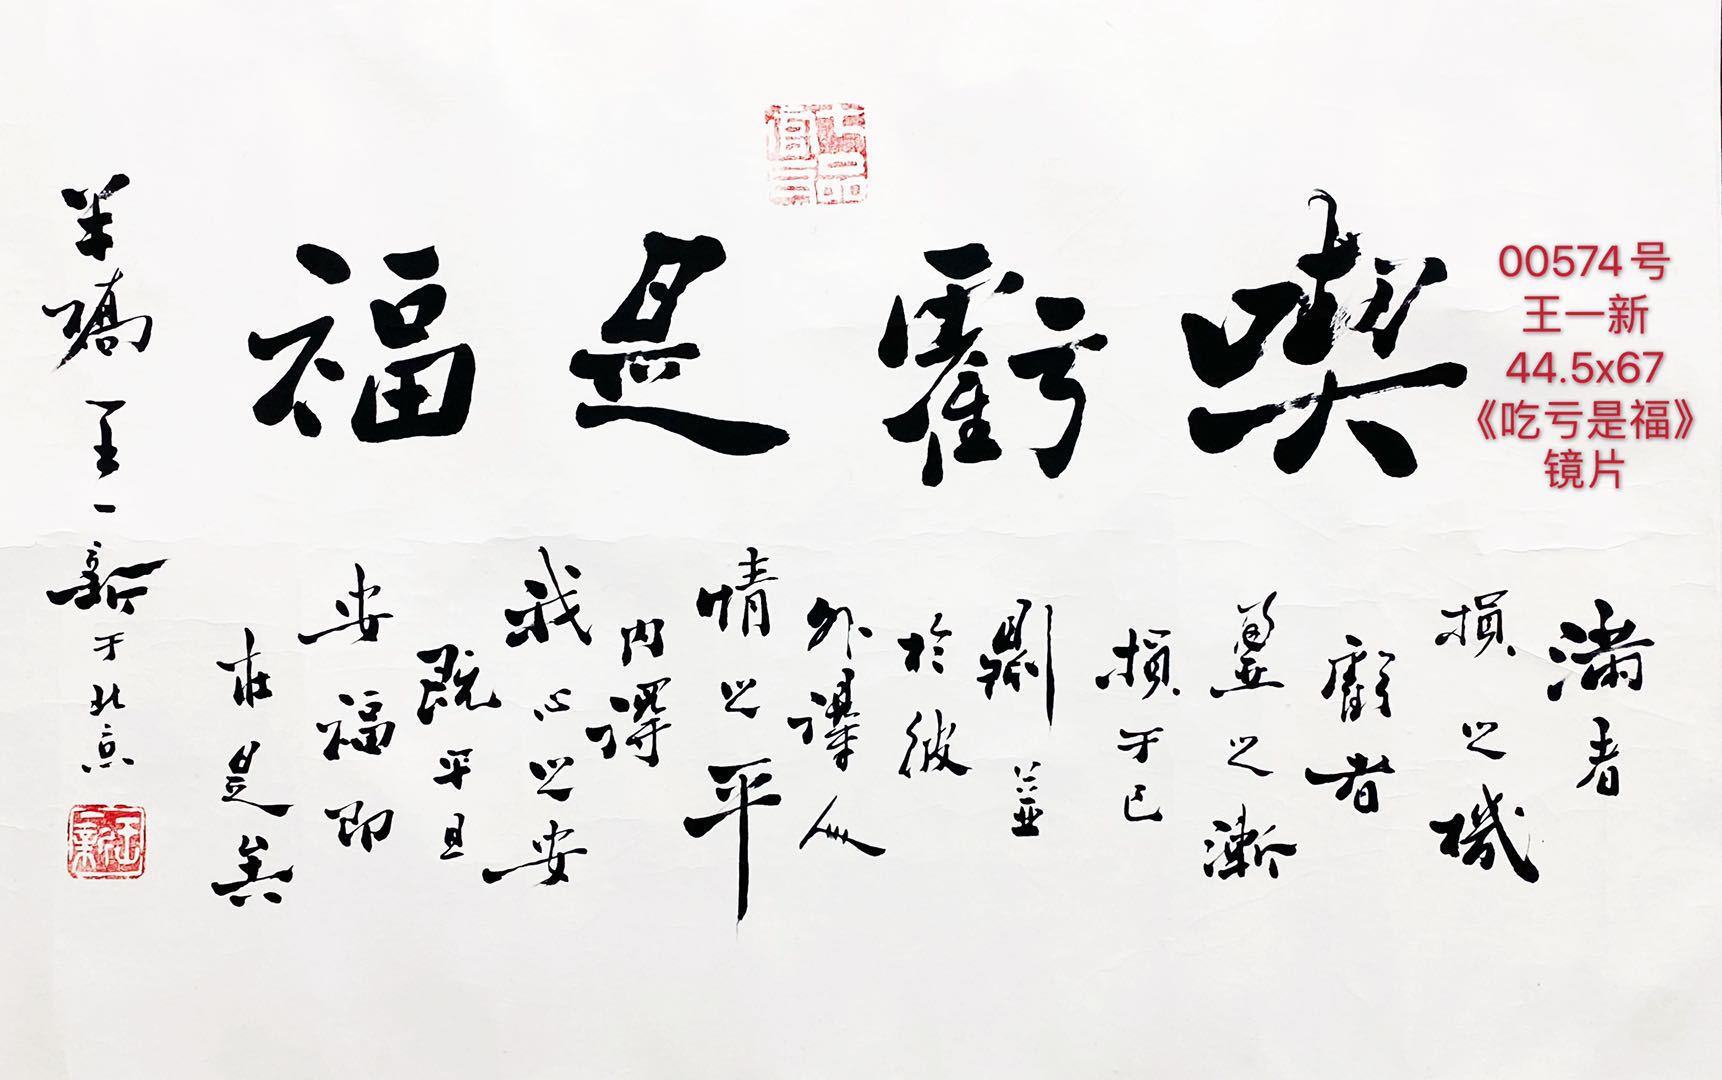 喫虧是福
满者
損之機
虧者
盈之漸
損于己
則益
於彼
外淂人
情之平
内淂
我心之安
既平且
安福即
在是矣
羊
王一新于北京
王一新
00574号
王一新
44.5x67
《吃亏是福》
镜片